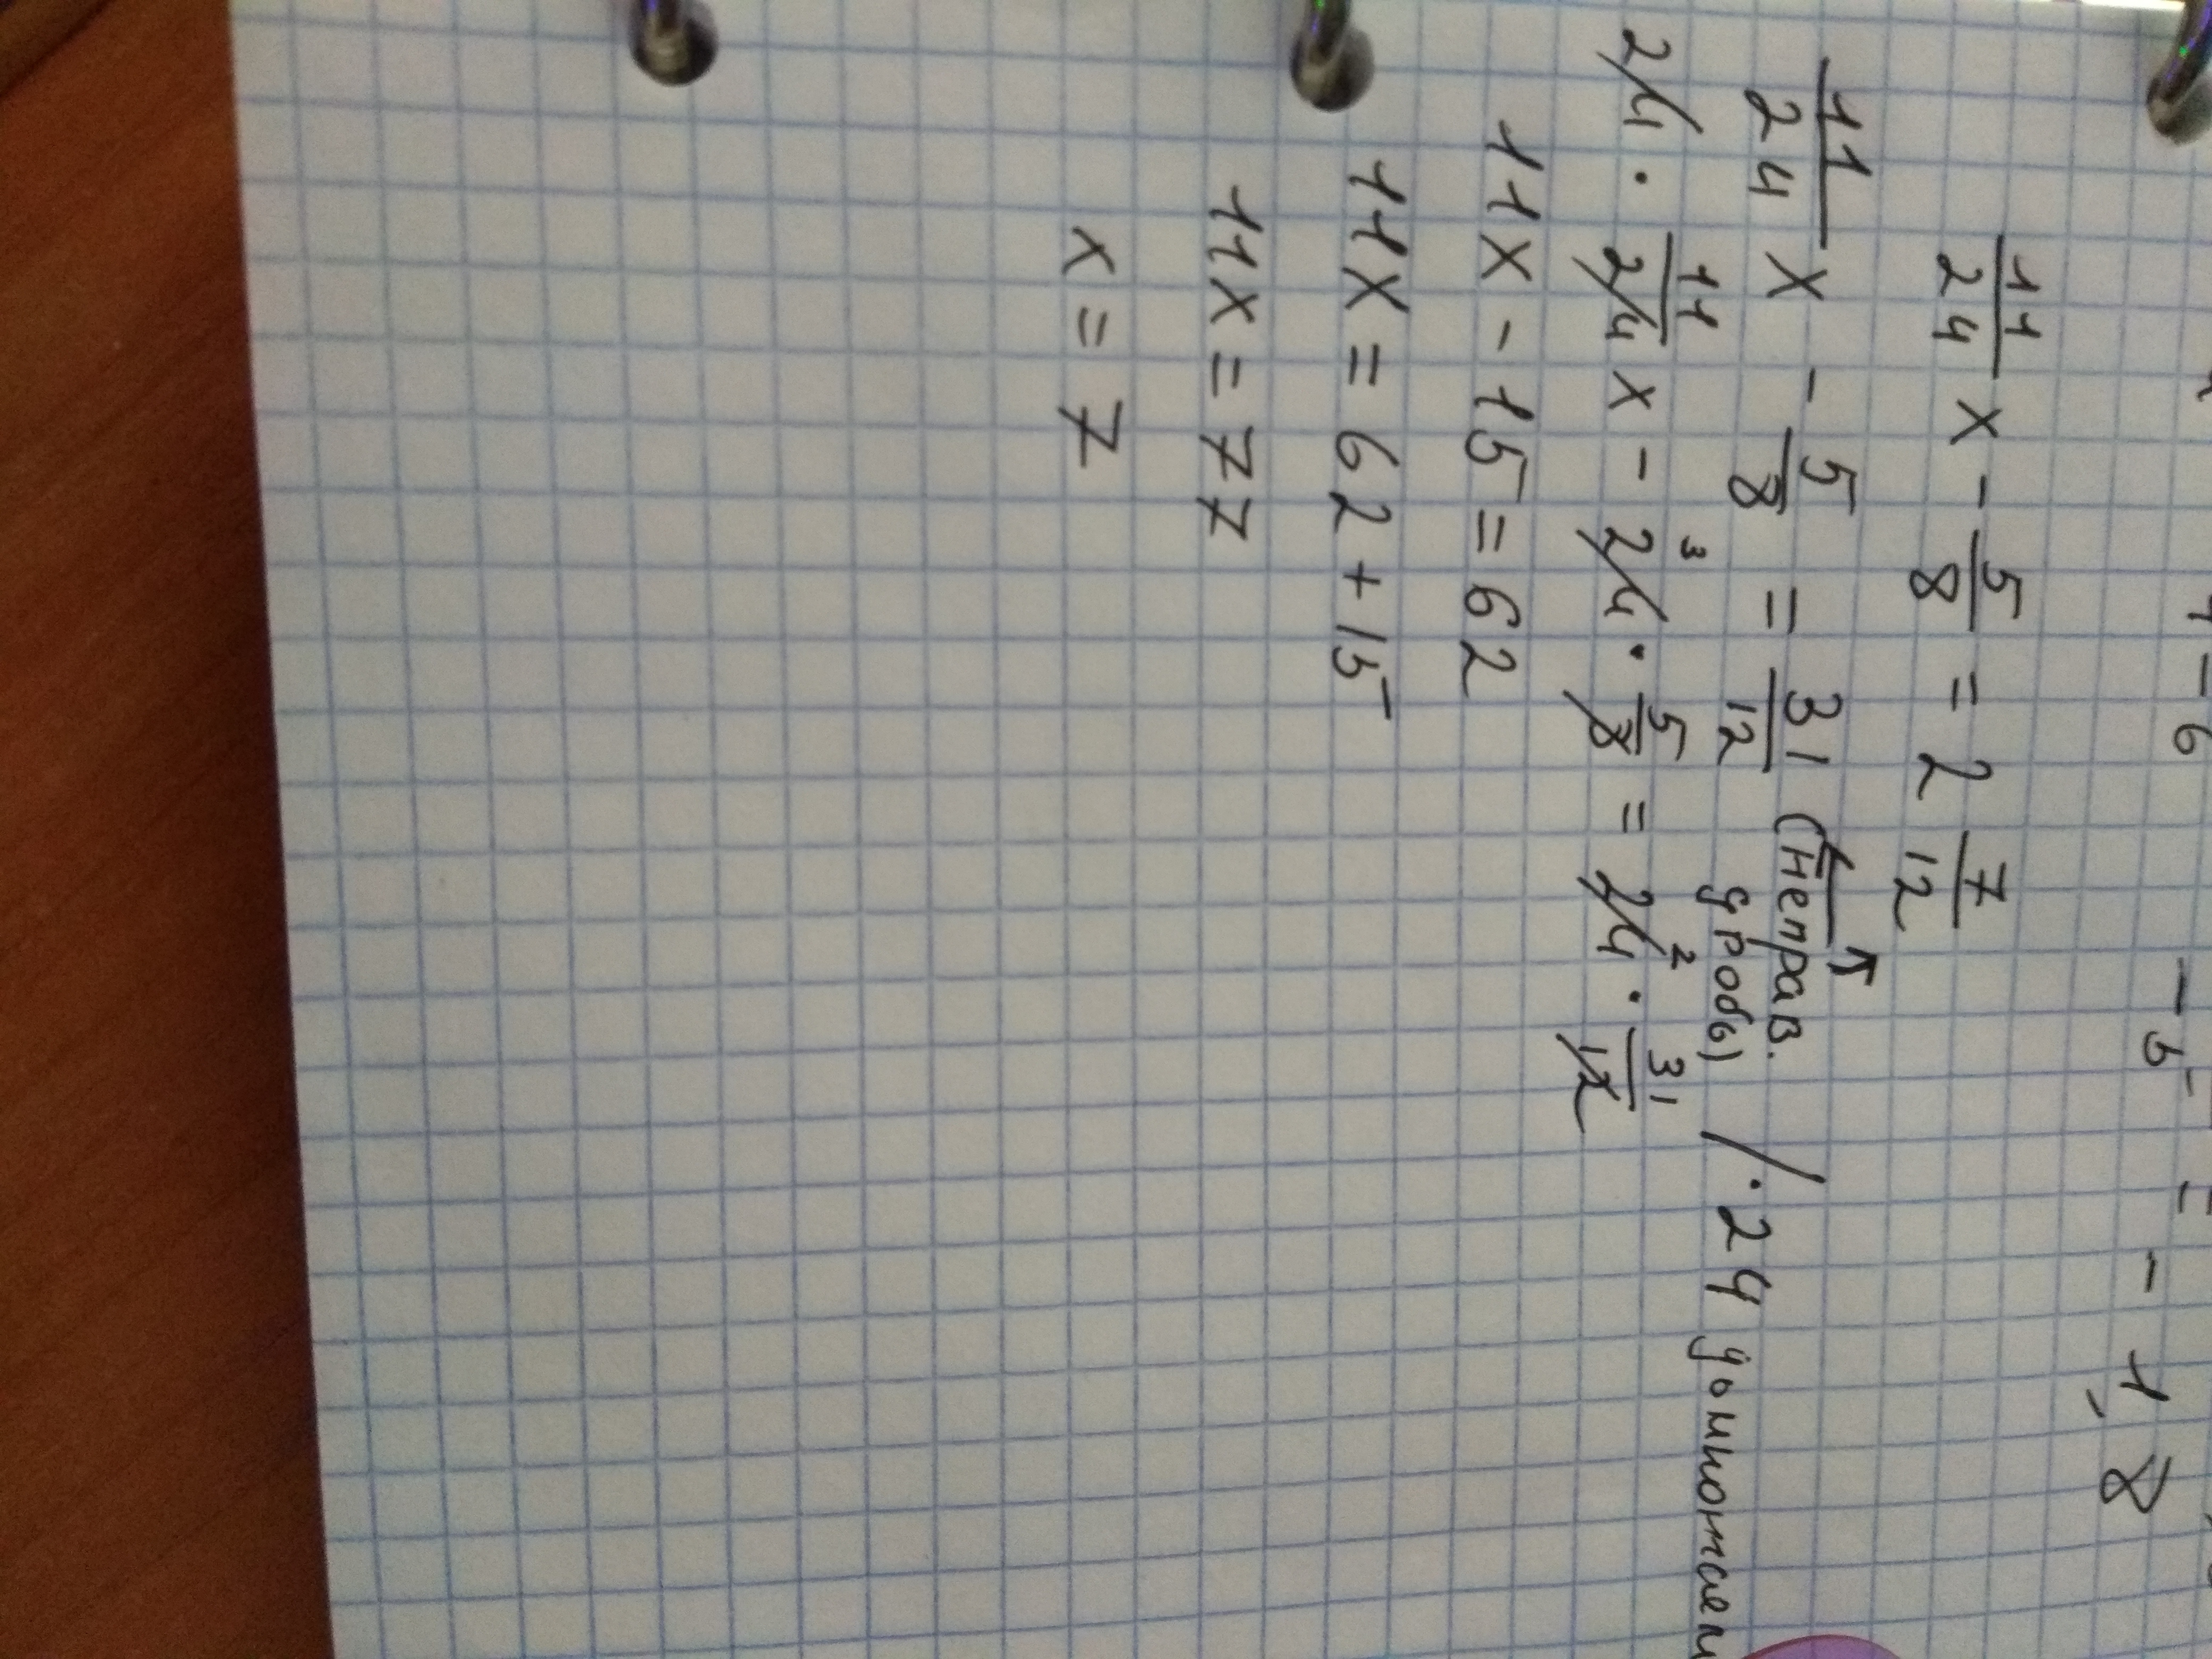 - 1,8
11/24 x - 5/8 = 2 7/12
11/24 x - 5/8 = 31/12 (неправ. дробь) /·24 домножаем
24 · 11/24 x - 24³ · 5/8 = 24² · 31/12
11x - 15 = 62
11x = 62 + 15
11x = 77
x = 7